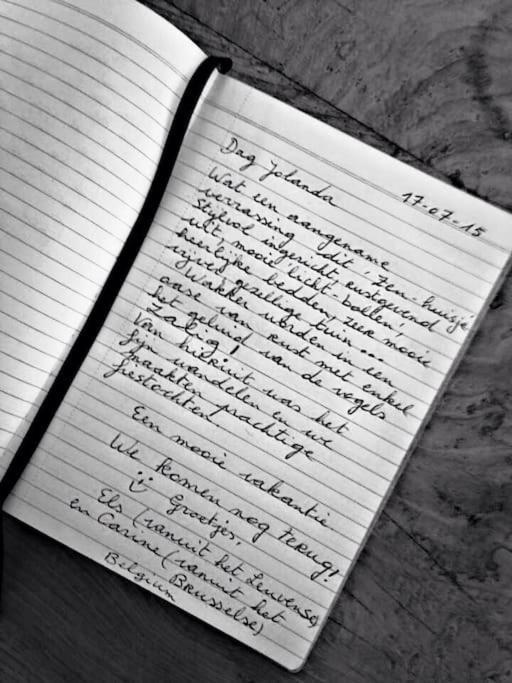 17-07-15
Dag Jolanda
Wat een aangename
verrassing dit 'Zen-huisje'
stijlvol ingericht, rustgevend
wit, mooie licht-bollen,
heerlijke bedden, zeer mooie
vrije gezellige tuin...
Wakker worden in een
oase van rust met enkel
het geluid van de vogels
Zalig!
Van hieruit was het
fijn wandelen en we
maakten prachtige
fietstochten.
Een mooie vakantie
We komen nog terug!
Groetjes.
Els (vanuit het Leuvense)
en Carine (vanuit het
Brusselse)
Belgium